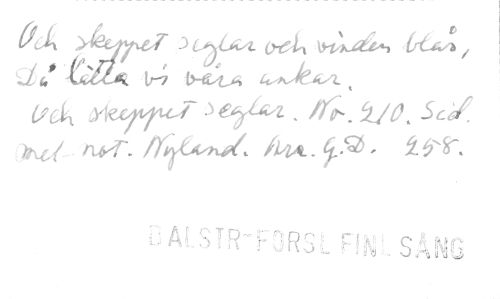 Och skeppet seglar och vinden blås,
Då lätta vi våra ankar.
Och skeppet seglar. No. 210. Sid.
mel. not. Nyland. G.D. 258.
DALSTR-FORSL FINL SÅNG